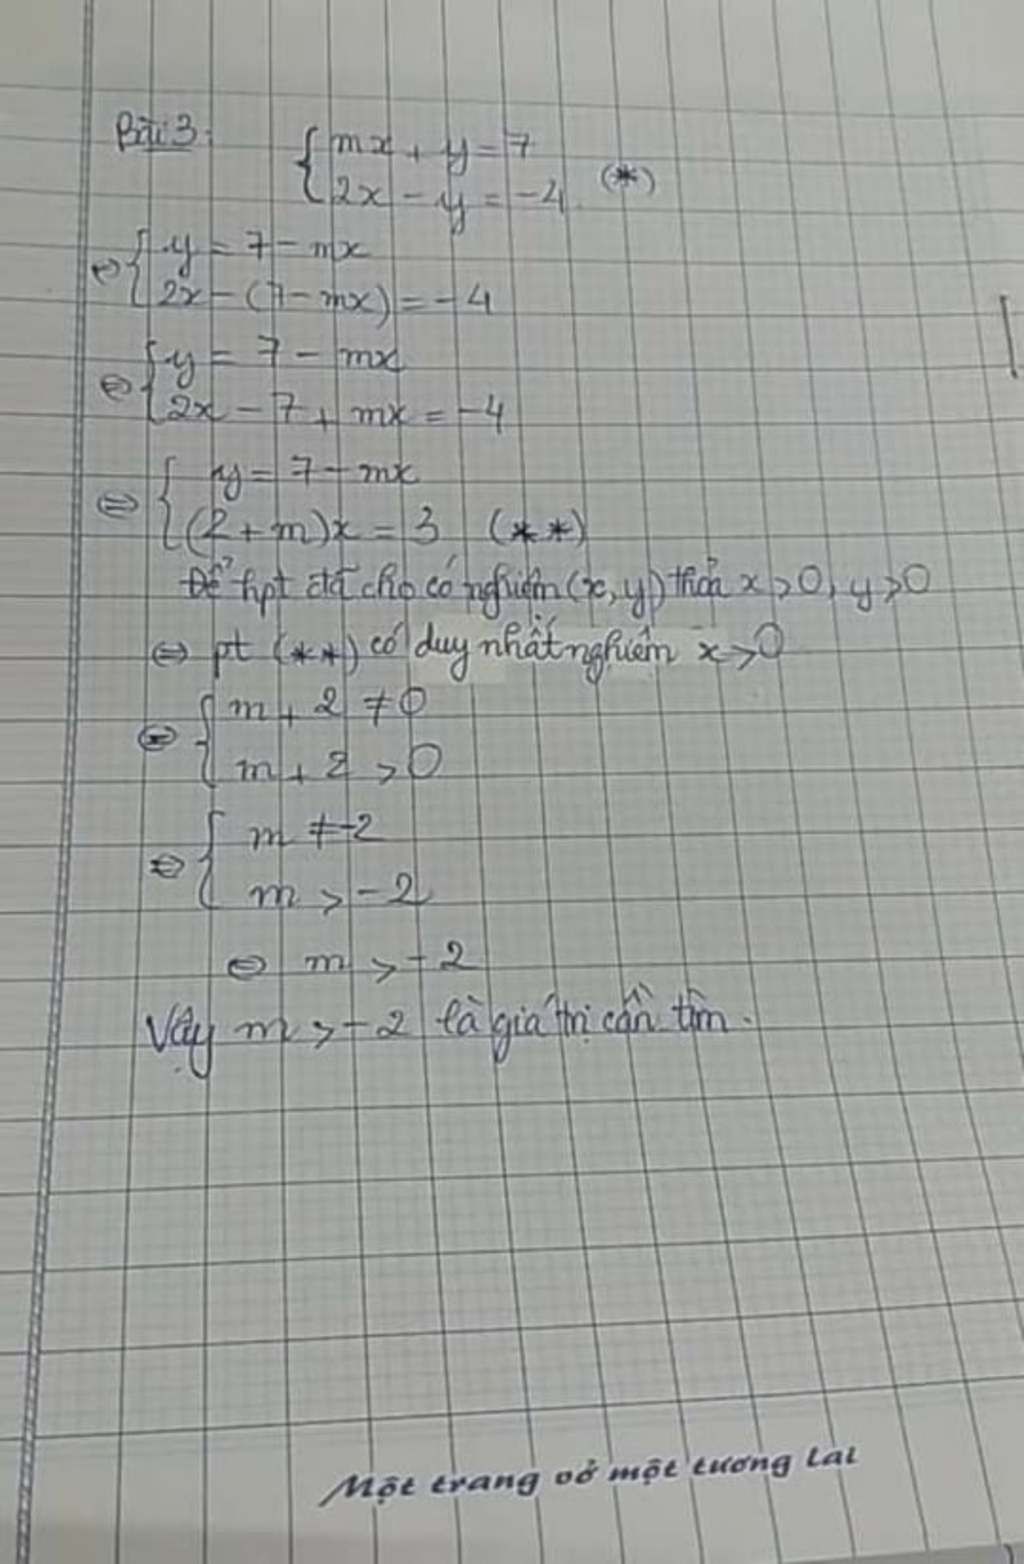 Bài 3:
{ mx + y = 7
{ 2x - y = -4 (*)
⇔ { y = 7 - mx
{ 2x - (7 - mx) = -4
⇔ { y = 7 - mx
{ 2x - 7 + mx = -4
⇔ { y = 7 - mx
{ (2 + m)x = 3 (**)
Để hpt đã cho có nghiệm (x, y) thỏa x > 0, y > 0
⇔ pt (**) có duy nhất nghiệm x > 0
⇔ { m + 2 ≠ 0
{ m + 2 > 0
⇔ { m ≠ -2
{ m > -2
⇔ m > -2
Vậy m > -2 là giá trị cần tìm.
Một trang vở một tương lai